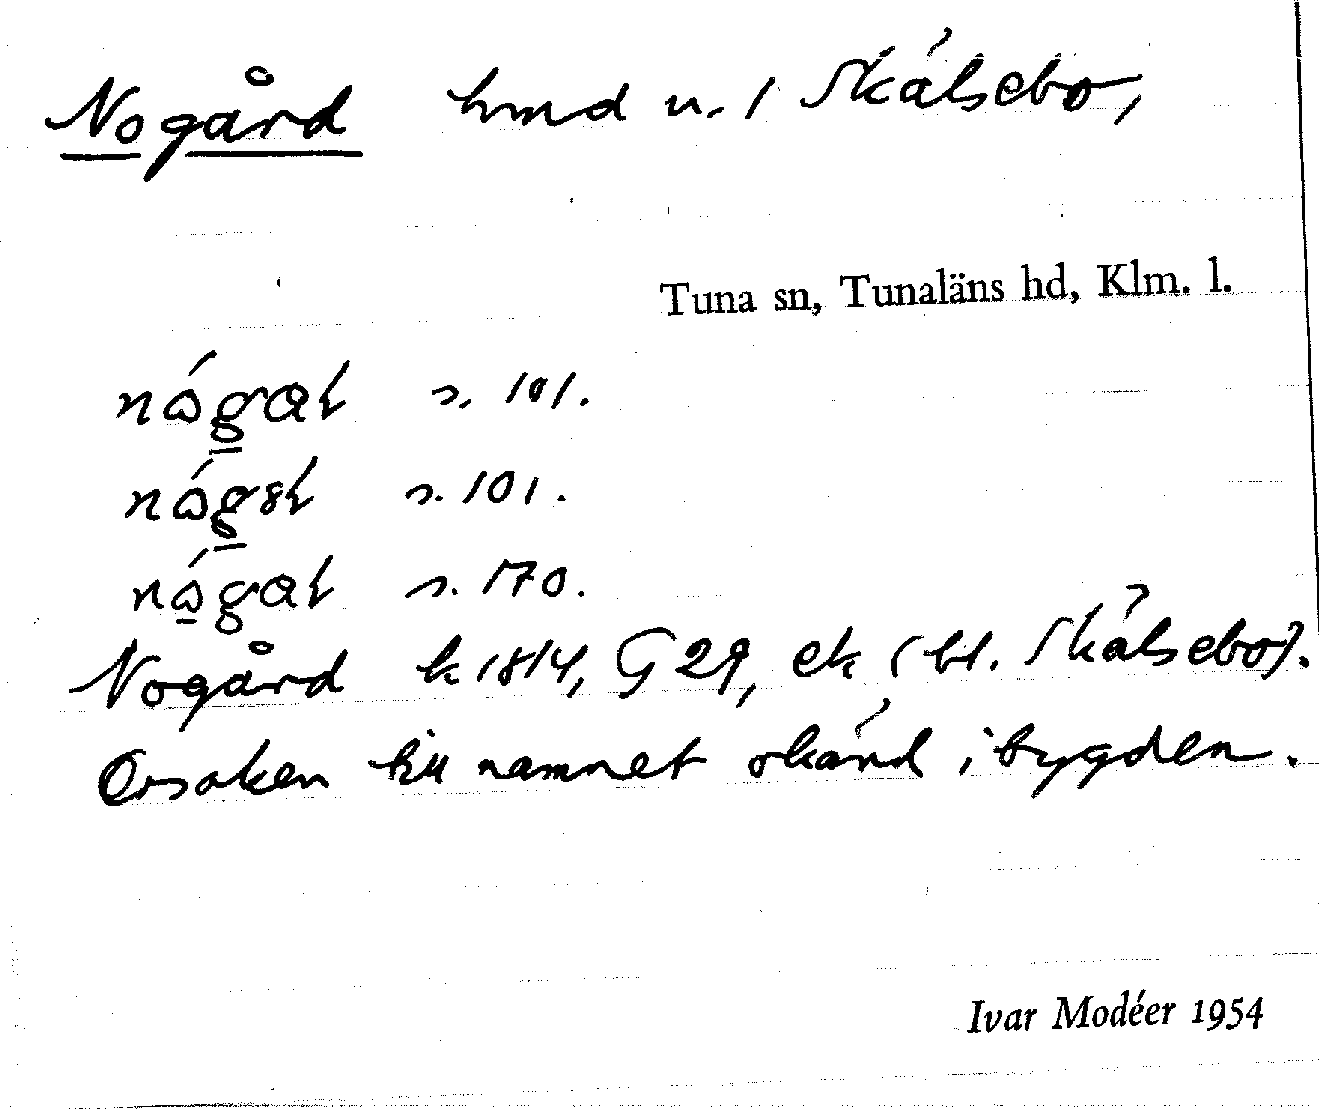 Nogård hmd u. / Skälsebo,
Tuna sn, Tunaläns hd, Klm. l.
s. 101.
s. 101.
s. 170.
Nogård k 1814, G 29, ek (bl. Skälsebo).
Orsaken till namnet okänd i bygden.
Ivar Modéer 1954